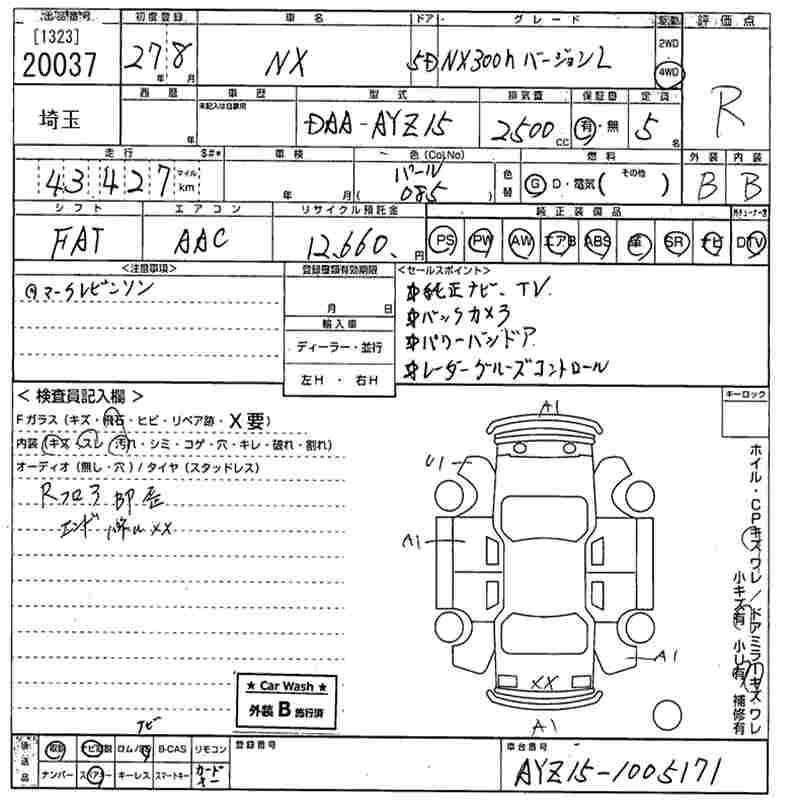 出品番号 初度登録 車名 ドア グレード 駆動 評価点
[1323]
20037 27年 8月 NX 5D NX300h バージョンL 2WD 4WD R
西暦 車歴 型式 排気量 保証書 定員
未記入は自家用
埼玉 年 DAA-AYZ15 2500cc 有・無 5名
走行 S#* 車検 色(Col,No) 燃料 外装 内装
43,427 マイル km 年 月 パール (085) 色替 G D・電気 (その他) B B
シフト エアコン リサイクル預託金 純正装備品
FAT AAC 12,660円 PS PW AW エアB ABS 革 SR ナビ DTV
<注意事項> 登録書類有効期限 <セールスポイント>
マークレビンソン 月 日
純正ナビ、TV
輸入車
バックカメラ
ディーラー・並行
パワーバックドア
左H・右H
レーダークルーズコントロール
<検査員記入欄>
キーロック
Fガラス(キズ・飛石・ヒビ・リペア跡・X要)
内装(キズ・スレ・汚れ・シミ・コゲ・穴・キレ・破れ・割れ)
オーディオ(無し・穴)/タイヤ(スタッドレス)
Rフロア部歪
エンドパネルXX
A1
U1
A1
A1
XX
A1
ホイル・CPキズワレ/ドアミラーキズワレ
小キズ有 小U有 補修有
★ Car Wash ★
外装 B 施行済
ナビ
後送品 取説 ナビ取説 ロム/SD B-CAS リモコン
ナンバー スペアキー キーレス スマートキー カードキー
登録番号 車台番号
AYZ15-1005171